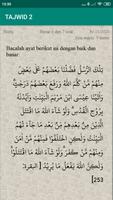 19:30
TAJWID 2
Bacalah ayat berikut ini dengan baik dan
benar:
تِلْكَ الرُّسُلُ فَضَّلْنَا بَعْضَهُمْ عَلَىٰ بَعْضٍ
مِنْهُمْ مَنْ كَلَّمَ اللَّهُ وَرَفَعَ بَعْضَهُمْ
دَرَجَاتٍ وَآتَيْنَا عِيسَى ابْنَ مَرْيَمَ الْبَيِّنَاتِ
وَأَيَّدْنَاهُ بِرُوحِ الْقُدُسِ وَلَوْ شَاءَ اللَّهُ مَا
اقْتَتَلَ الَّذِينَ مِنْ بَعْدِهِمْ مِنْ بَعْدِ مَا
جَاءَتْهُمُ الْبَيِّنَاتُ وَلَٰكِنِ اخْتَلَفُوا فَمِنْهُمْ
مَنْ آمَنَ وَمِنْهُمْ مَنْ كَفَرَ وَلَوْ شَاءَ اللَّهُ
مَا اقْتَتَلُوا وَلَٰكِنَّ اللَّهَ يَفْعَلُ مَا يُرِيدُ
[253]